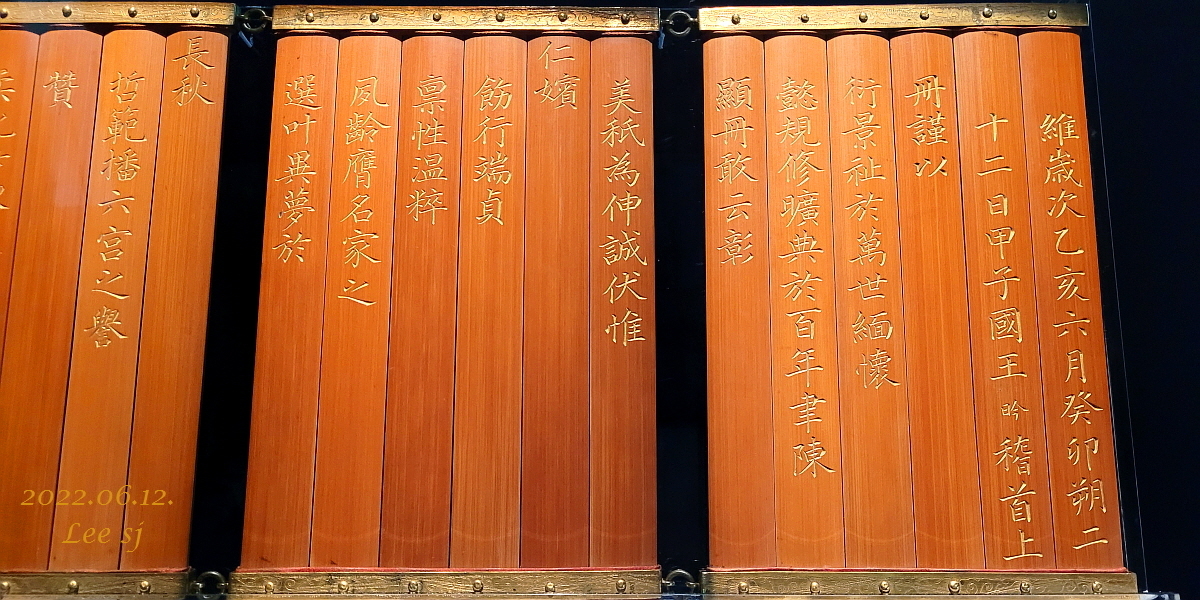 維歳次乙亥六月癸卯朔二
十二日甲子國王昑稽首上
冊謹以
衍景祉於萬世緬懷
懿規修曠典於百年聿陳
顯冊敢云彰
美秖為伸誠伏惟
仁嬪
飭行端貞
禀性温粹
夙齡膺名家之
選叶異夢於
長秋
哲範播六宮之譽
贊
2022.06.12.
Lee sj